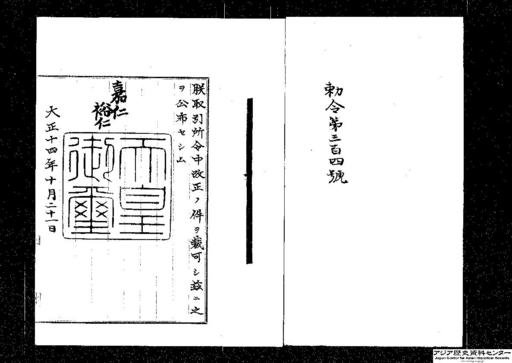 勅令第三百四號
朕取引所令中改正ノ件ヲ裁可シ茲ニ之
ヲ公布セシム
嘉仁
裕仁
天皇
御璽
大正十四年十月二十一日
アジア歴史資料センター
Japan Center for Asian Historical Records